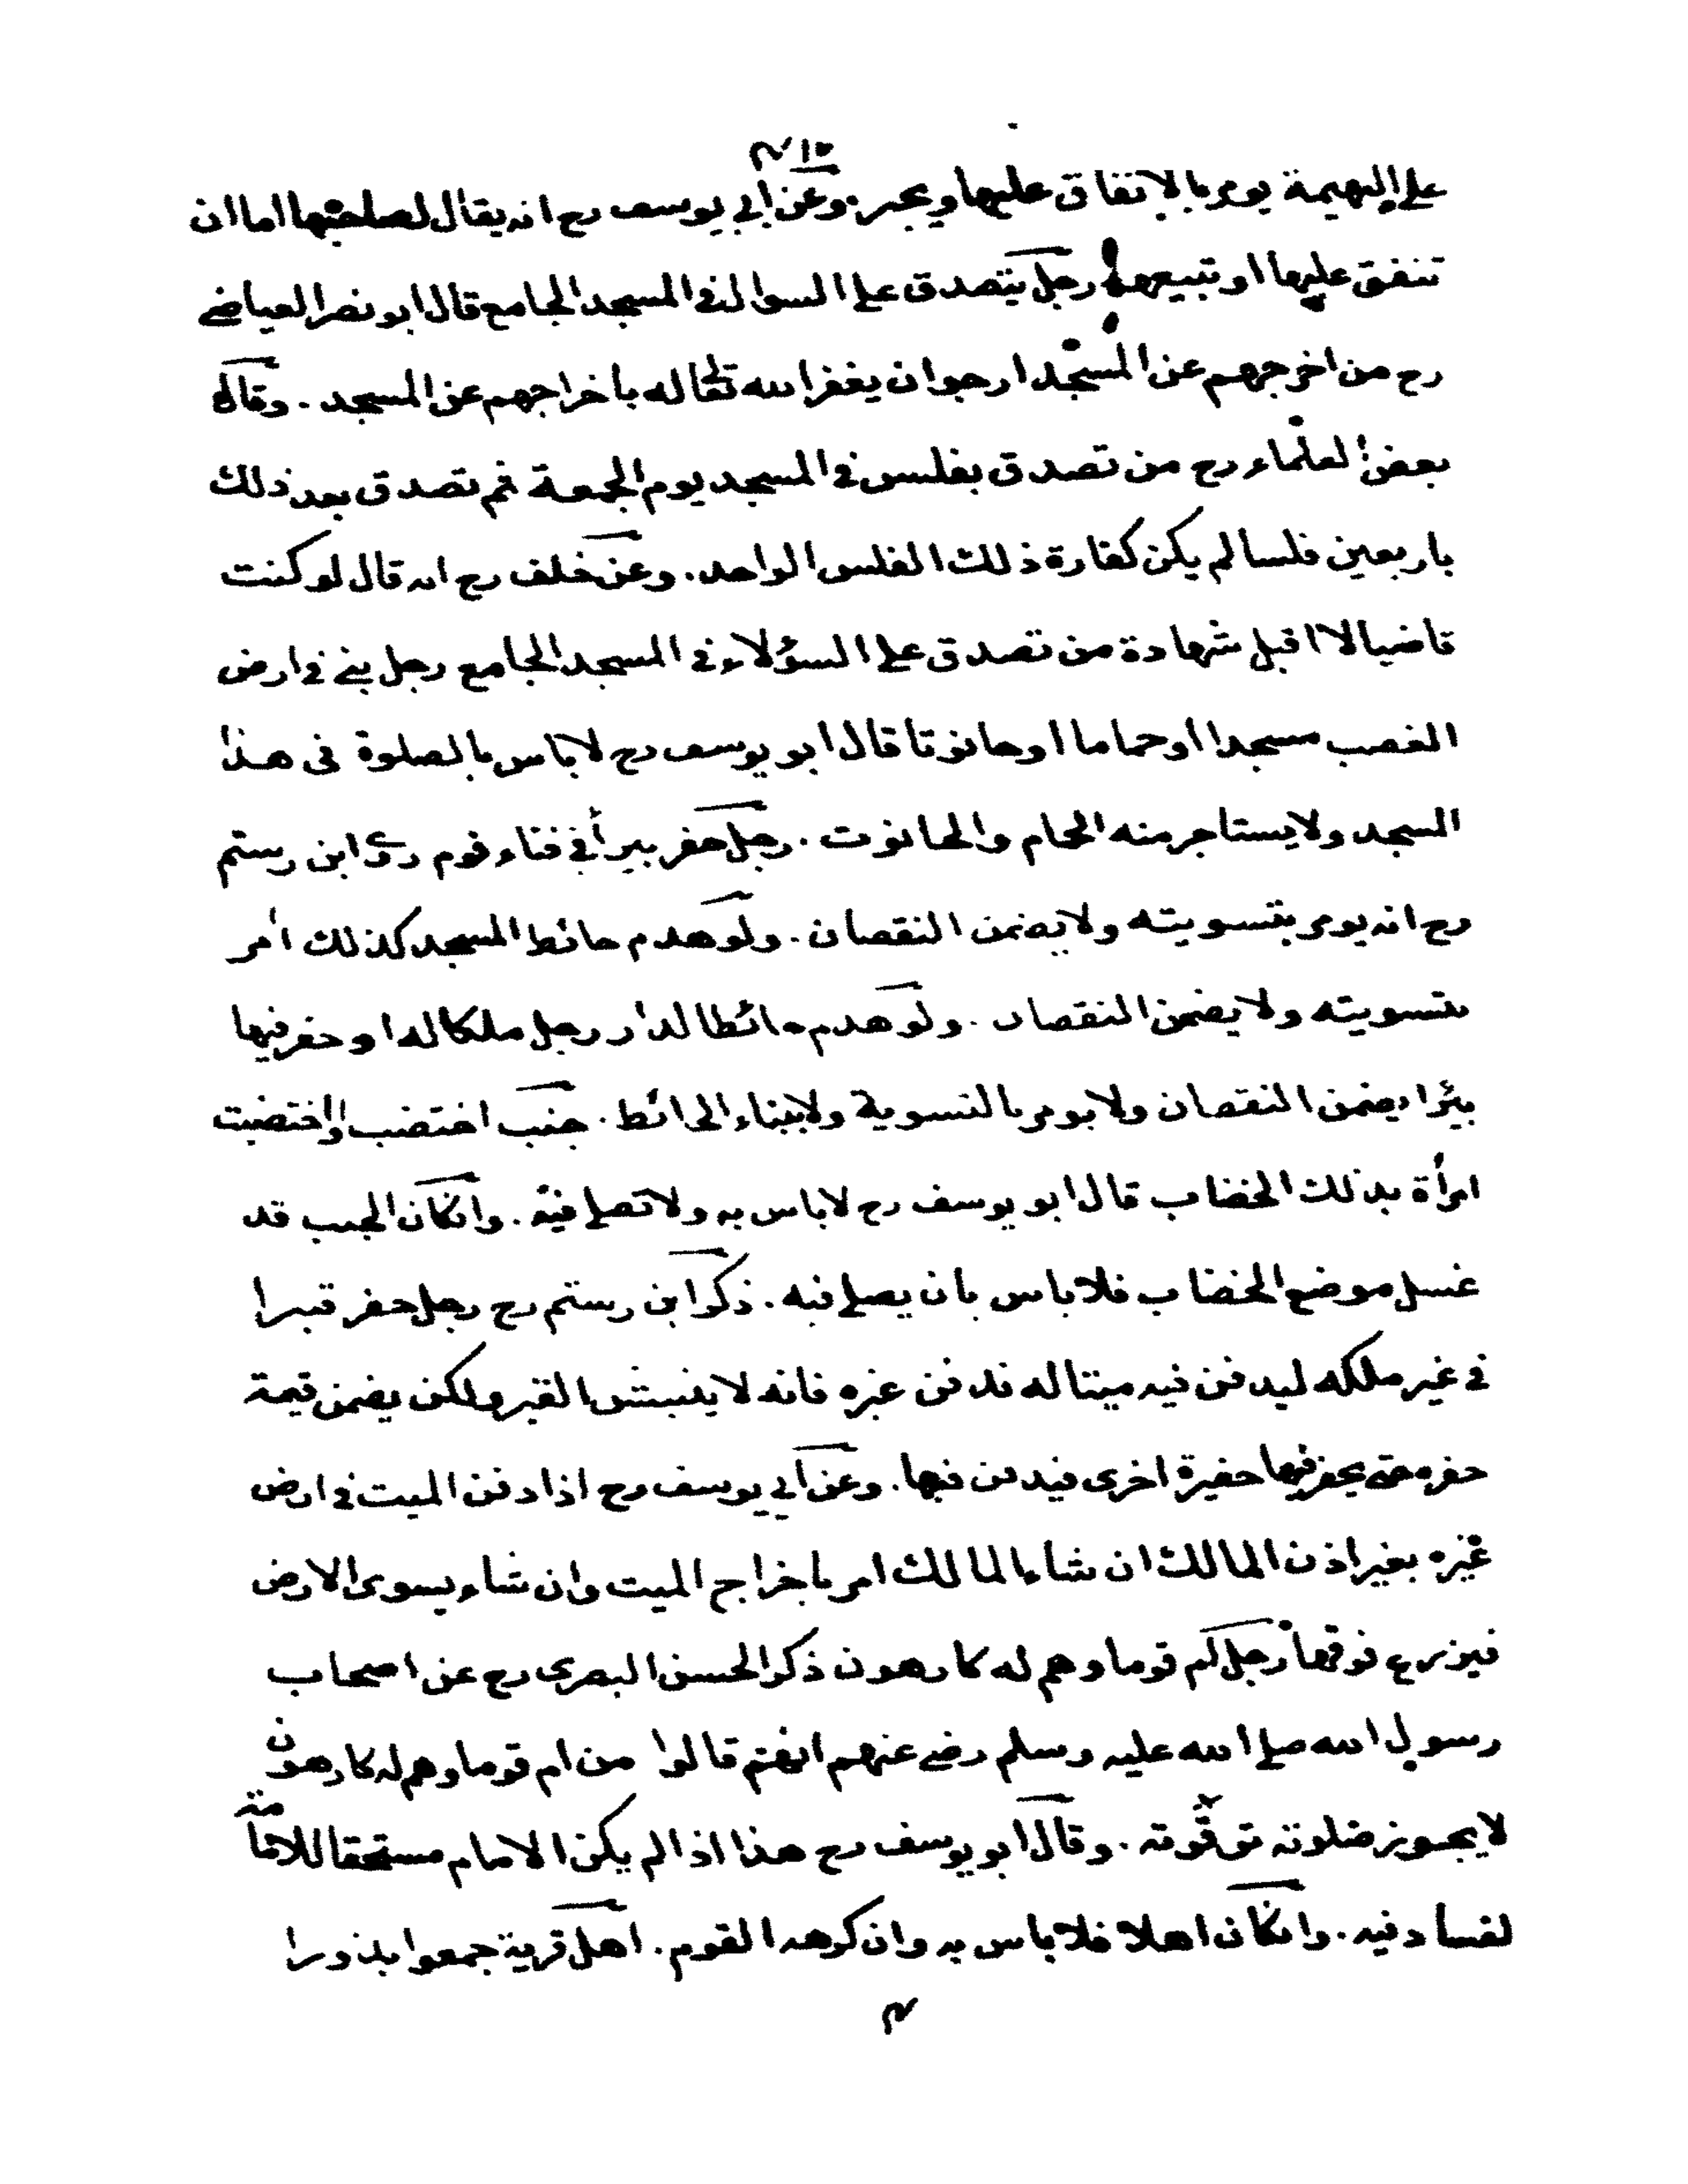 على البهيمة يومر بالانفاق عليها ويجبر. وعن ابي يوسف رح انه يقال لصاحبها اما ان
تنفق عليها او تبيعها رجل يتصدق على السوال في المسجد الجامع قال ابو نصر العياضي
رح من اخرجهم عن المسجد ارجوا ان يغفر الله تعالى له باخراجهم عن المسجد . وقال
بعض العلماء رح من تصدق بفلس في المسجد يوم الجمعة ثم تصدق بعد ذلك
باربعين فلسا لم يكن كفارة ذلك الفلس الواحد. وعن خلف رح انه قال لو كنت
قاضيا لا اقبل شهادة من تصدق على السؤلاء في المسجد الجامع رجل بنى في ارض
الغصب مسجدا او حماما او حانوتا قال ابو يوسف رح لا باس بالصلوة في هذا
المسجد ولا يستاجر منه الحمام والحانوت . رجل حفر بيرأ في فناء قوم روى ابن رستم
رح انه يومر بتسويته ولا يضمن النقصان . ولو هدم حائط المسجد كذلك امر
بتسويته ولا يضمن النقصان . ولو هدم حائطا لدار رجل ملكا له او حفر فيها
بئرا يضمن النقصان ولا يومر بالتسوية ولا ببناء الحائط . جنب اختضب واختضبت
امرأة بذلك الخضاب قال ابو يوسف رح لا باس به ولا تصلى فيه . وانكان الجنب قد
غسل موضع الخضاب فلا باس بان يصلى فيه . ذكر ابن رستم رح رجل حفر قبرا
في غير ملكه ليدفن فيه ميتا له فدفن غيره فانه لا ينبش القبر ولكن يضمن قيمة
حفره حتى يحفر فيها حفيرة اخرى فيدفن فيها. وعن ابي يوسف رح اذا دفن الميت في ارض
غيره بغير اذن المالك ان شاء المالك امر باخراج الميت وان شاء يسوى الارض
فيزرع فوقها رجل ام قوما وهم له كارهون ذكر الحسن البصرى رح عن اصحاب
رسول الله صلى الله عليه وسلم رضى عنهم انهم قالوا من ام قوما وهم له كارهون
لا يجوز صلوته ترقوته . وقال ابو يوسف رح هذا اذا لم يكن الامام مستحقا للامامة
لفساد فيه . وانكان اهلا فلا باس به وان كرهه القوم . اهل قرية جمعوا بذورا